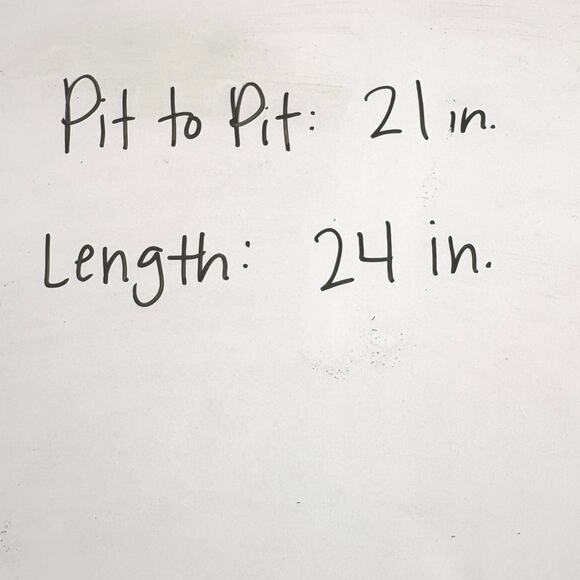 Pit to Pit: 21 in.
Length: 24 in.